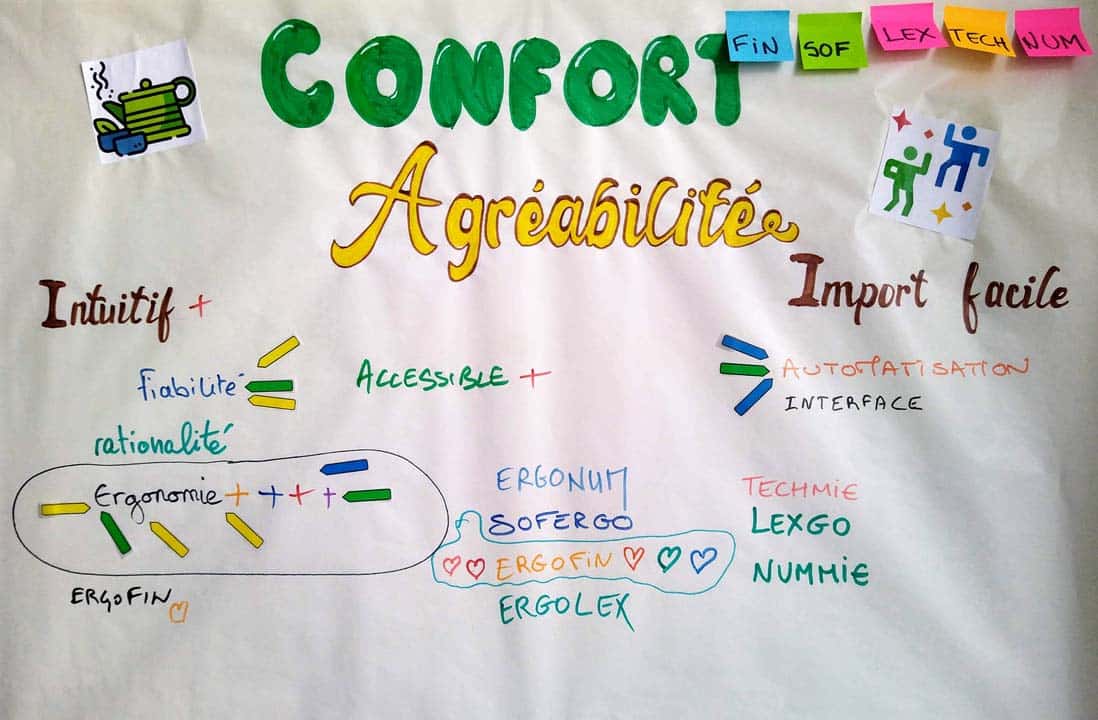 CONFORT
FIN
SOF
LEX
TECH
NUM
Agréabilité
Intuitif +
Import facile
fiabilité
ACCESSIBLE +
AUTOMATISATION
INTERFACE
rationalité
Ergonomie + + + +
ERGONUM
SOFERGO
ERGOFIN
ERGOLEX
TECHMIE
LEXGO
NUMMIE
ERGOFIN